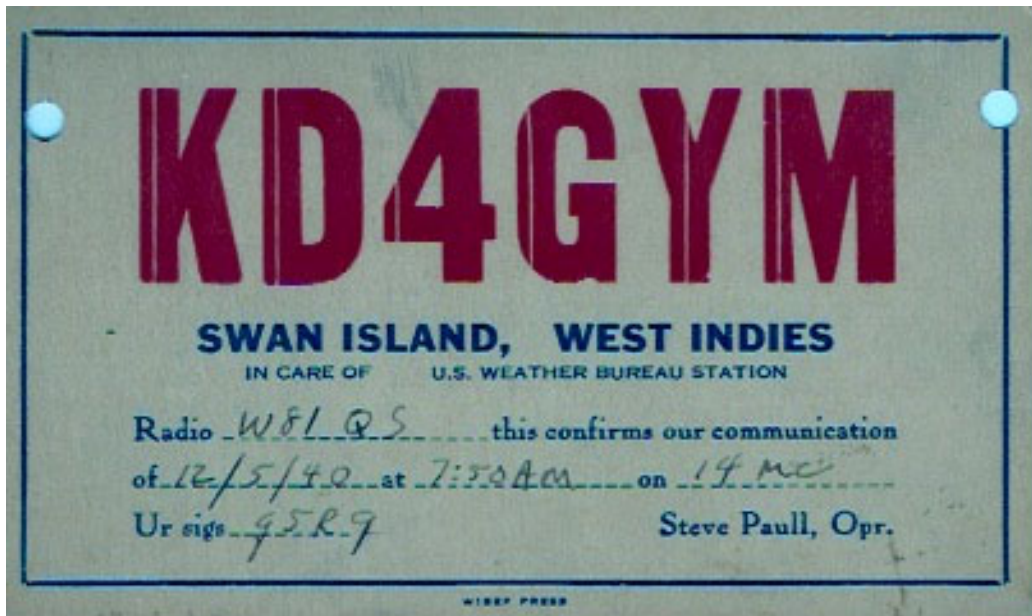 KD4GYM
SWAN ISLAND, WEST INDIES
IN CARE OF U.S. WEATHER BUREAU STATION
Radio W8IQS this confirms our communication
of 12/5/40 at 7:50AM on 14 MC
Ur sigs q5R9 Steve Paull, Opr.
W1BEF PRESS